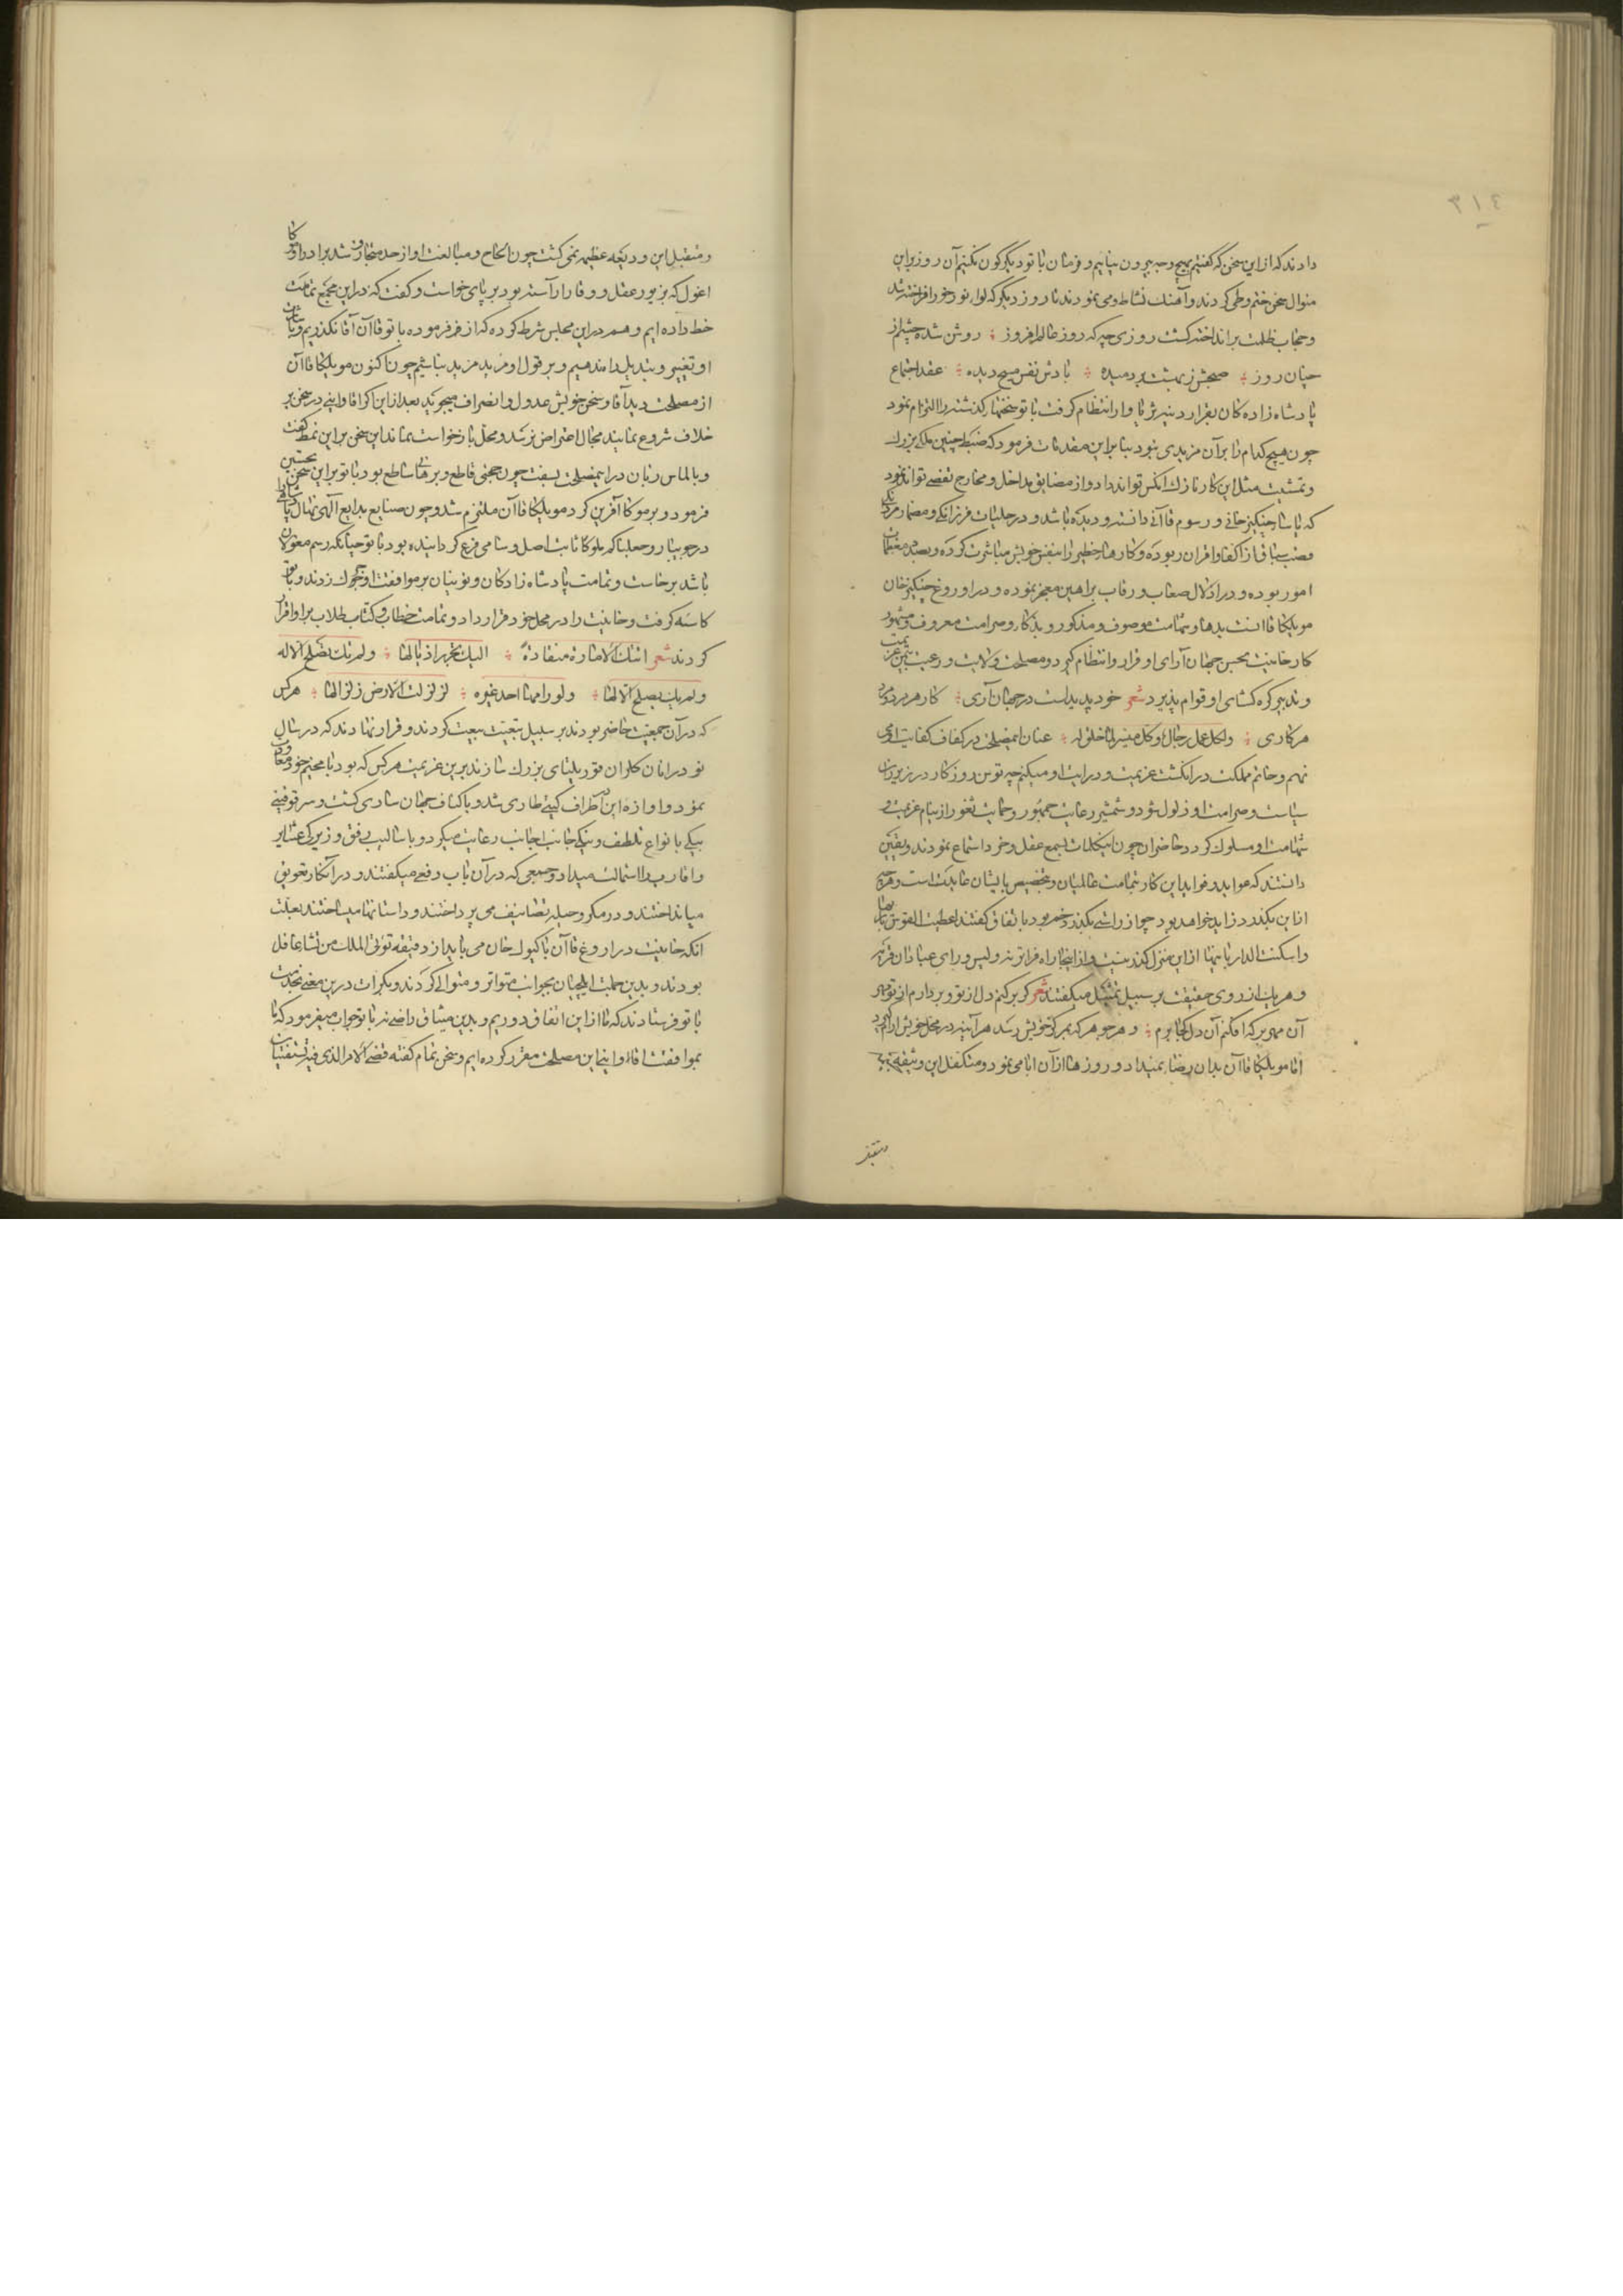 ٣١٤
دادند که ازین سخن که گفتیم بهیچ وجه بیرون نیاییم و فرمان باتو دیگرگون نکنیم آن روز برین
منوال سخن ختم و طی کردند و آهنگ نشاط و می نمودند تا روز دیگر که لواء نور خور افراخته شد
و حجاب ظلمت برانداخته گشت روزی چه که روز عالم افروز ؛ روشن شده چشم از
جنان روز ؛ صبحش ز بهشت بر دمیده ؛ بادش نفس مسیح دیده ؛ عقد اجتماع
پادشاه زادکان بقرار دینه ثریا وار انتظام گرفت باتو سخنهاء گذشته را التزام نمود
چون هیچ کدام را بر آن مزیدی نبود بنا برین مقدمات فرمود که ضبط چنین ملکی بزرگ
و تمشیت مثل این کار نازک آنکس تواند داد و از مضایق مداخل و مخارج تفصی تواند نمود
که یاساء چنگیزخانی و رسوم قاآنی دانسته و دیده باشد و در حلبات فرزانگی و مضمار مردانگی
قصب سباق از اکفا و اقران ربوده و کارهاء خطیر را بنفس خویش مباشرت کرده و بصدد معظمات
امور بوده و در اذلال صعاب و رقاب براهین معجز نموده و در اوروغ چنگیزخان
مونککا قاآنست بدها و شهامت موصوف و مذکور و بذکا و صرامت معروف و مشهور
کار خانیت بحسن جهان آرای او قرار و انتظام گیرد و مصلحت ولایت و رعیت بیمن عزیمت
و تدبیر گره گشای او قوام پذیرد شعر خود پدیدست در جهان آری ؛ کار هر مرد و مرد
هر کاری ؛ ولکل عمل رجال و کل میسر لما خلق له ؛ عنان این مصلحت در کف کفایت او می
نهم و خاتم مملکت در انگشت عزیمت و درایت او میکنم چه توسن روزگار در زیر ران
سیاست و صرامت او ذلول شود و شمشیر رعایت جمهور و حمایت ثغور از نیام عزیمت و
شهامت او مسلول گردد حاضران چون این کلمات بسمع عقل و خرد استماع نمودند و یقین
دانستند که عواید و فواید این کار بتمامت عالمیان و بتخصیص بایشان عایدست و هرچه
از این بگذرد زاید خواهد بود چو از راستی بگذرد خم بود باتفاق گفتند اعطیت القوس باریها
و اسکنت الدار بانیها ازین منزل گذر نیست و از اینجا راه فراتر نه و لیس وراء عبادان قریه
و هریک از روی حقیقت بر سبیل تمثل میگفتند شعر گر بر کنم دل از تو و بردارم از تو مهر
آن مهر بر که افکنم آن دل کجا برم ؛ و هر جوهر که بمرکز خویش رسد هر آینه در محل خویش آرام گیرد
اما مونککا قاآن بدان رضا نمیداد و روزها از آن ابا می نمود و متکفل این وثیقه
متقبل
و متقبل این ودیعه عظیم نمی گشت چون الحاح و مبالغت او از حد متجاوز شد برادر او موکا
اغول که بزیور عقل و وقار آراسته بود بر پای خواست و گفت که در این مجمع تمامت
خط داده ایم و هم در این مجلس شرط کرده که از فرمرده باتو قاآن آقا نگذریم و بر سخن
او تغییر و تبدیل راه ندهیم و بر قول او مزید مزید نباشیم چون اکنون مونککا قاآن
از مصلحت دید آقا و سخن خویش عدول و انصراف میجوید بعد ازین اگر آقا و اینی در سخن بر
خلاف شروع نمایند مجال اعتراض نرسد و محل بازخواست نماند این سخن بر این نمط گفت
و بالماس زبان در این مصلحت بسفت چون حجتی قاطع و برهانی ساطع بود باتو برین سخن تحسین
فرمود و بر موکا آفرین کرد مونککا قاآن ملتزم شد و چون صنایع بدایع الهی نهال پادشاهی را
در جویبار و جعلناکم ملوکا ثابت اصل و سامی فرع گردانیده بود باتو چنانکه رسم مغولان
باشد برخاست و تمامت پادشاه زادکان و نوینان بر موافقت او چوک زدند و باتو
کاسه گرفت و خانیت را در محل خود قرار داد و تمامت خطاب و کتاب طلاب برا و اقرار
کردند شعر اتتک الامارة منقادة ؛ الیک تجرر اذیالها ؛ ولم تک تصلح الا له
ولم یک یصلح الا لها ؛ ولو رامها احد غیره ؛ لزلزلت الارض زلزالها ؛ هر کس
که در آن جمعیت حاضر بودند بر سبیل تبعیت بیعت کردند و قرار نهادند که در سال
نو در انان کلوران قوریلتای بزرگ سازند برین عزیمت هر کس که بود با مخیم خود معاودت
نمود و آوازه این باطراف گیتی طاری شد و باکناف جهان ساری گشت و سرقوقیتی
بیکی بانواع تلطف و نیکی جانب اجانب رعایت میکرد و باسالیب رفق و زیرکی عشایر
و اقارب را استمالت میداد و جمعی که در آن باب دفعی میگفتند و در آن کار تعویق
می انداختند و در مکر و حیله تصانیف می پرداختند و داستانها میساختند بعلت
آنکه خانیت در اروغ قاآن یا کیوک خان می باید از دقیقه تؤتی الملک من تشا غافل
بودند و بدین جهت ایلچیان بجوانب متواتر و متوالی کردند و بکرات درین معنی بخدمت
باتو فرستادند که ما از این اتفاق دوریم و بدین میثاق راضی نه باتو جواب میفرمود که ما
بموافقت آقا و اینی این مصلحت مقرر کرده ایم و سخن تمام گفته قضی الامر الذی فیه تستفتیان